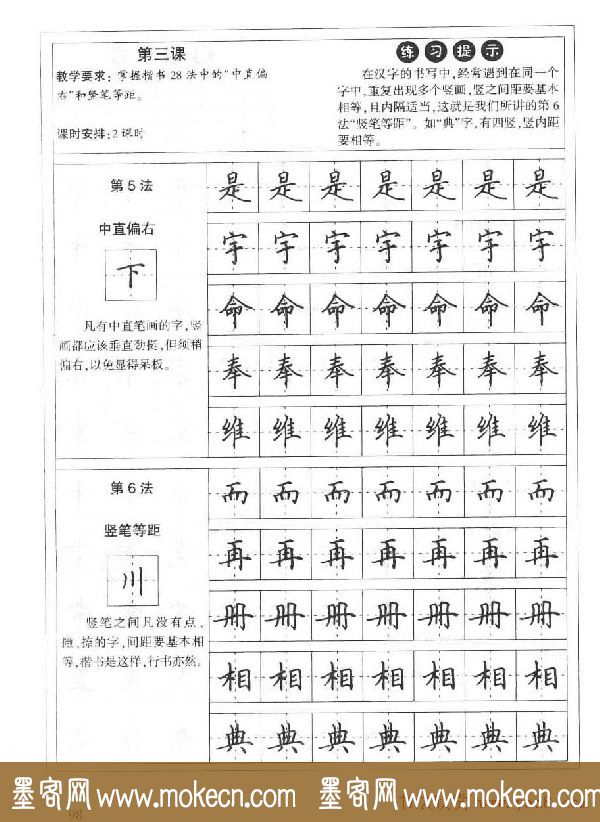 第三课
教学要求：掌握楷书28法中的“中直偏
右”和竖笔等距。
课时安排：2课时
练习提示
在汉字的书写中，经常遇到在同一个
字中，重复出现多个竖画，竖之间距要基本
相等，且内隔适当，这就是我们所讲的第6
法“竖笔等距”。如“典”字，有四竖，竖内距
要相等。
第5法
中直偏右
下
凡有中直笔画的字，竖
画都应该垂直劲挺，但须稍
偏右，以免显得呆板。
是是是是是是是
宇宇宇宇宇宇宇
命命命命命命命
奉奉奉奉奉奉奉
维维维维维维维
第6法
竖笔等距
川
竖笔之间凡没有点、
撇、捺的字，间距要基本相
等，楷书是这样，行书亦然。
而而而而而而而
再再再再再再再
册册册册册册册
相相相相相相相
典典典典典典典
墨客网 www.mokecn.com 墨客网 www.mokecn.com
98